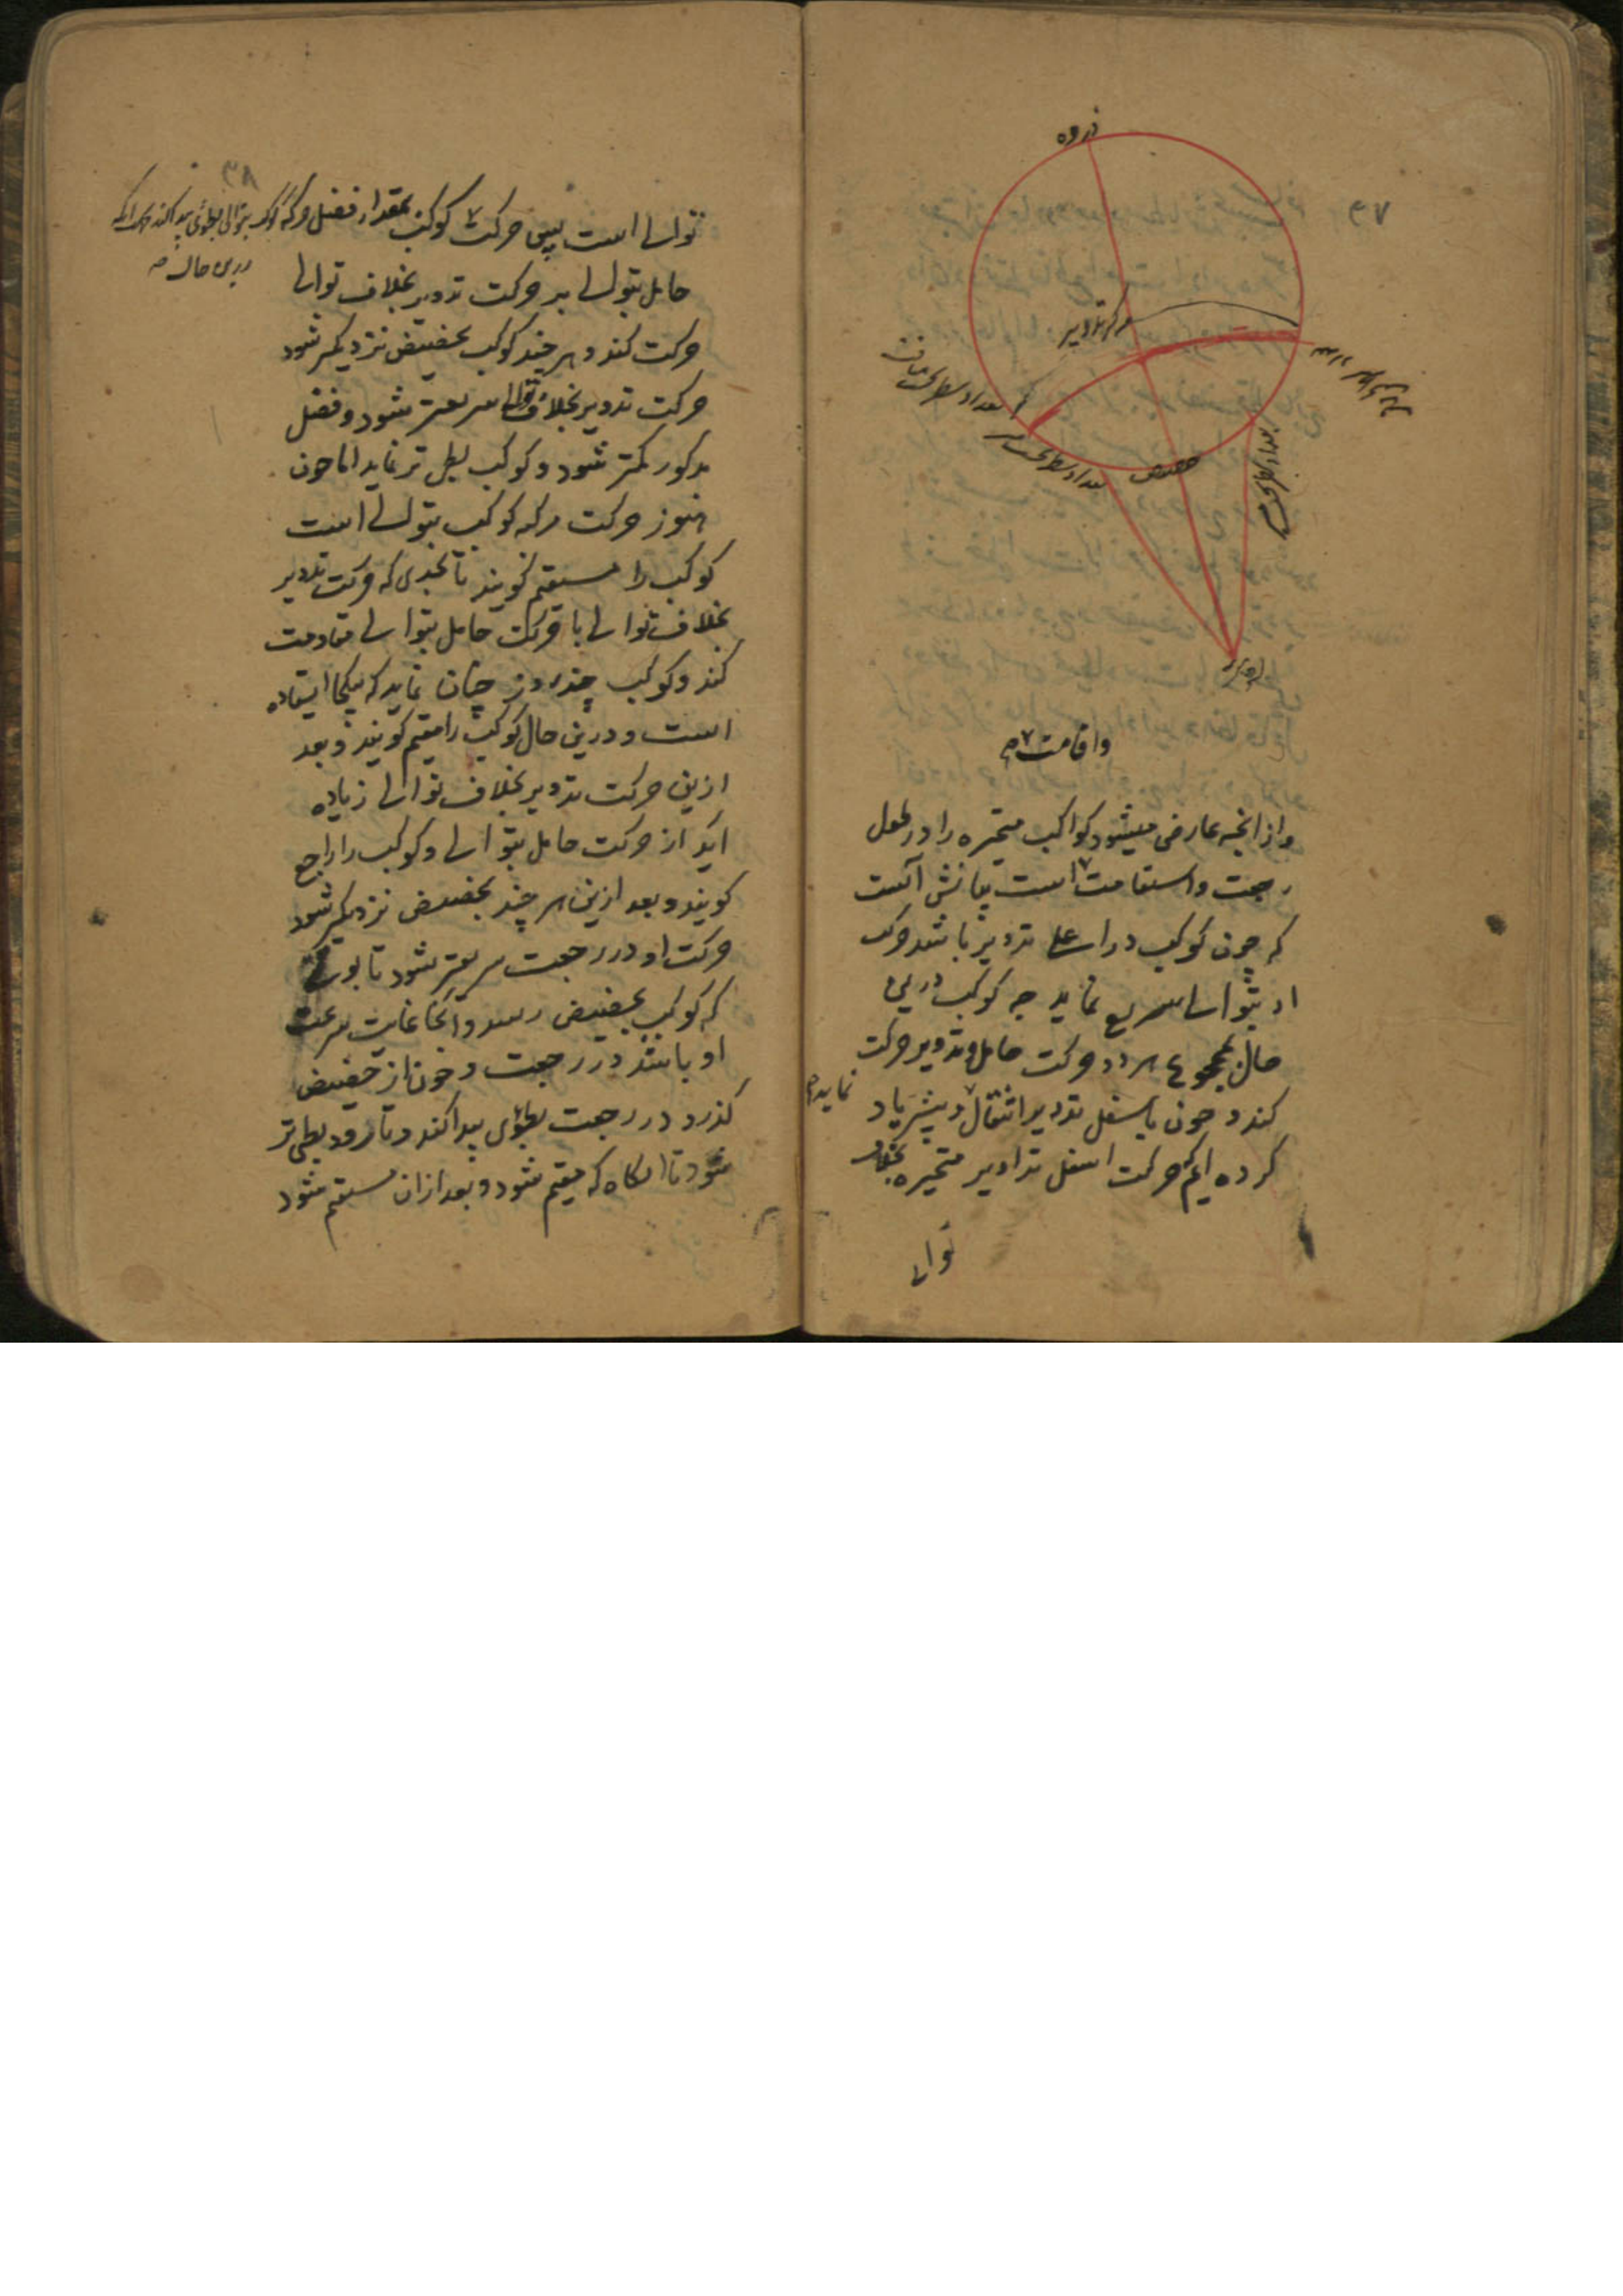 ۳۷
ذروه
مرکز تدویر
حضیض
واقامت ۷ م
واز انچه عارض میشود کواکب متحیره را در طول
رجعت و استقامت ۷ است بیانش آنست
که چون کوکب در اعلی تدویر باشد حرکت
او بتوالی سریع نماید چه کوکب درین
حال بمجموع هر دو حرکت حامل و تدویر حرکت
کند و چون باسفل تدویر انتقال ۷ و پیشتر یاد
نماید م
کرده ایم که حرکت اسفل تداویر متحیره بخلاف
توالی
۳۸
توالی است پس حرکت کوکب بمقدار فضل حرکة
کوکب بتوالی بطوئی پیدا کند
درین حال
حامل بتوالی بر حرکت تدویر بخلاف توالی
حرکت کند و هر چند کوکب بحضیض نزدیکتر شود
حرکت تدویر بخلاف توالی سریعتر شود و فضل
مذکور کمتر شود و کوکب بطی تر نماید اما چون
هنوز حرکت مرکز کوکب بتوالی است
کوکب را مستقیم گویند تا بحدی که حرکت تدویر
بخلاف توالی با حرکت حامل بتوالی مقاومت
کند و کوکب چند روز چنان نماید که یکجا ایستاده
است و درین حال کوکب را مقیم گویند و بعد
ازین حرکت تدویر بخلاف توالی زیاده
آید از حرکت حامل بتوالی و کوکب را راجع
گویند و بعد ازین هر چند بحضیض نزدیکتر شود
حرکت او در رجعت سریعتر شود تا بوقتی
که کوکب بحضیض رسد و آنجا غایت سرعت
او باشد در رجعت و چون از حضیض
گذرد در رجعت بطوئی پیدا کند و تا رود بطی تر
شود تا آنگاه که مقیم شود و بعد ازان مستقیم شود